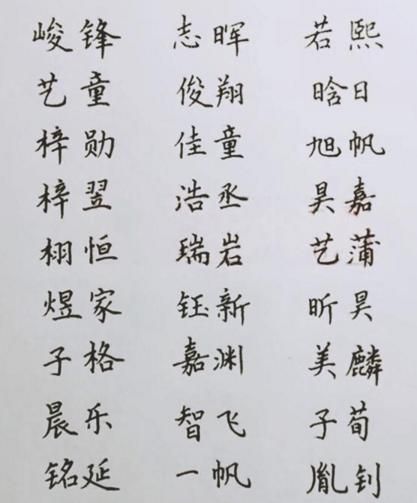 峻锋 志晖 若熙
艺童 俊翔 晗日
梓勋 佳童 旭帆
梓翌 浩丞 昊嘉
栩恒 瑞岩 艺蒲
煜家 钰新 昕昊
子格 嘉渊 美麟
晨乐 智飞 子荀
铭延 一帆 胤钊